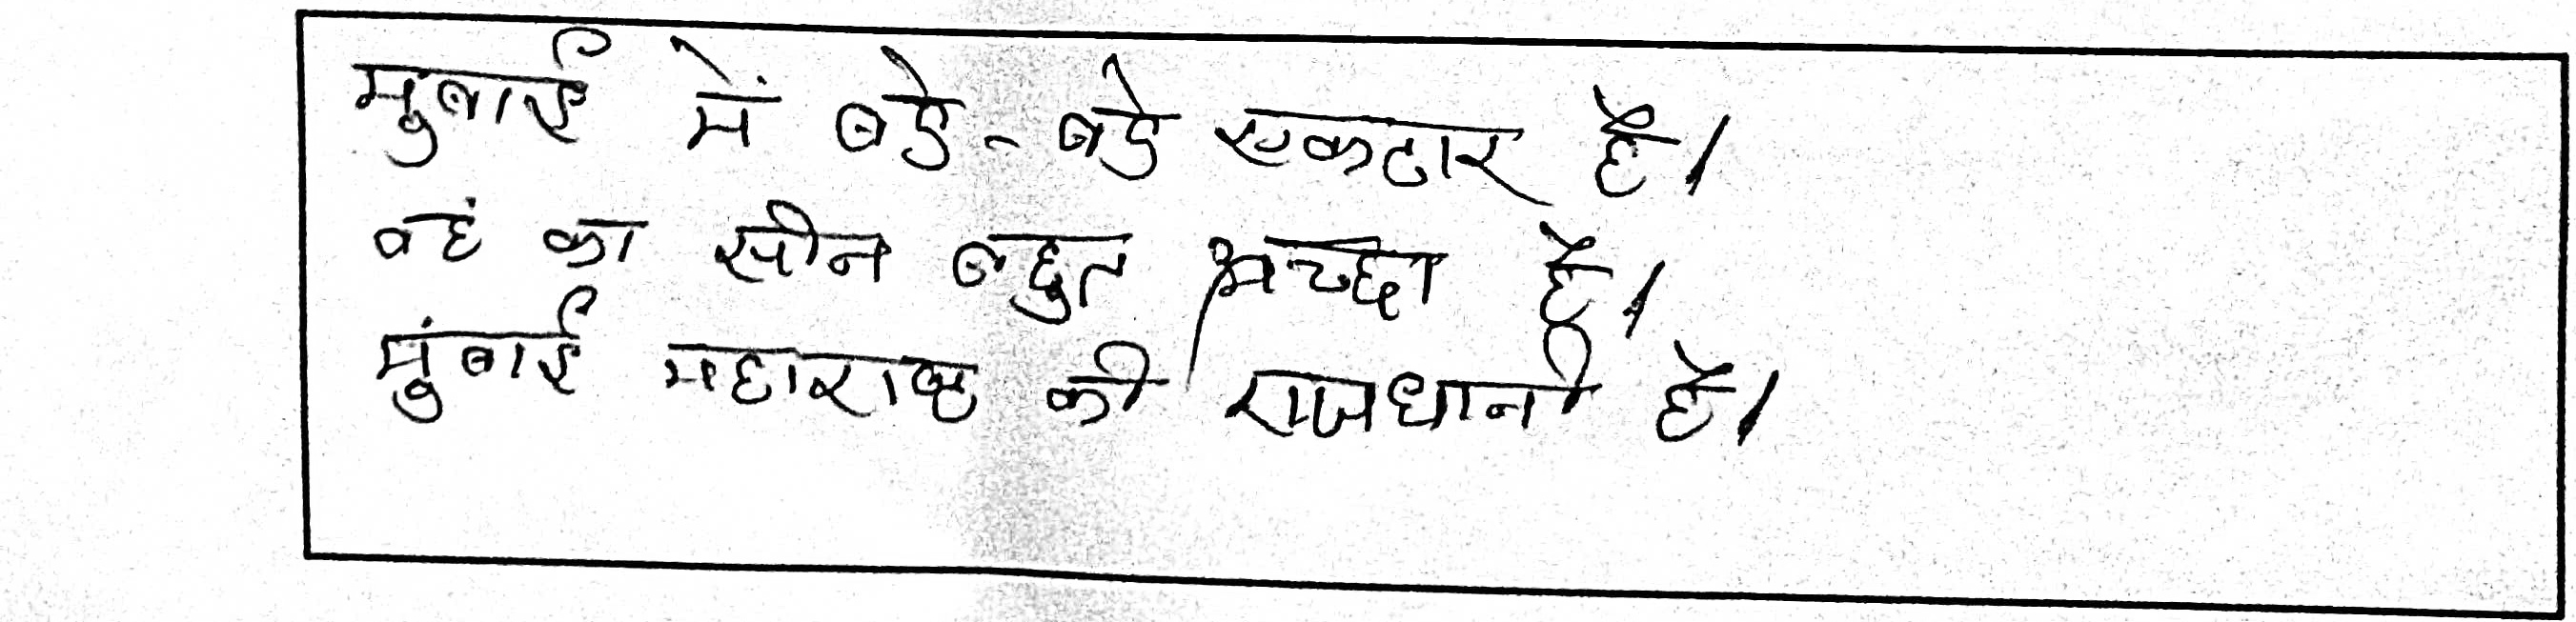 मुबाई में बडे-बडे एकटार है।
वहं का सीन बहुत अच्छा है।
मुंबाई महाराष्ट की राजधानी है।